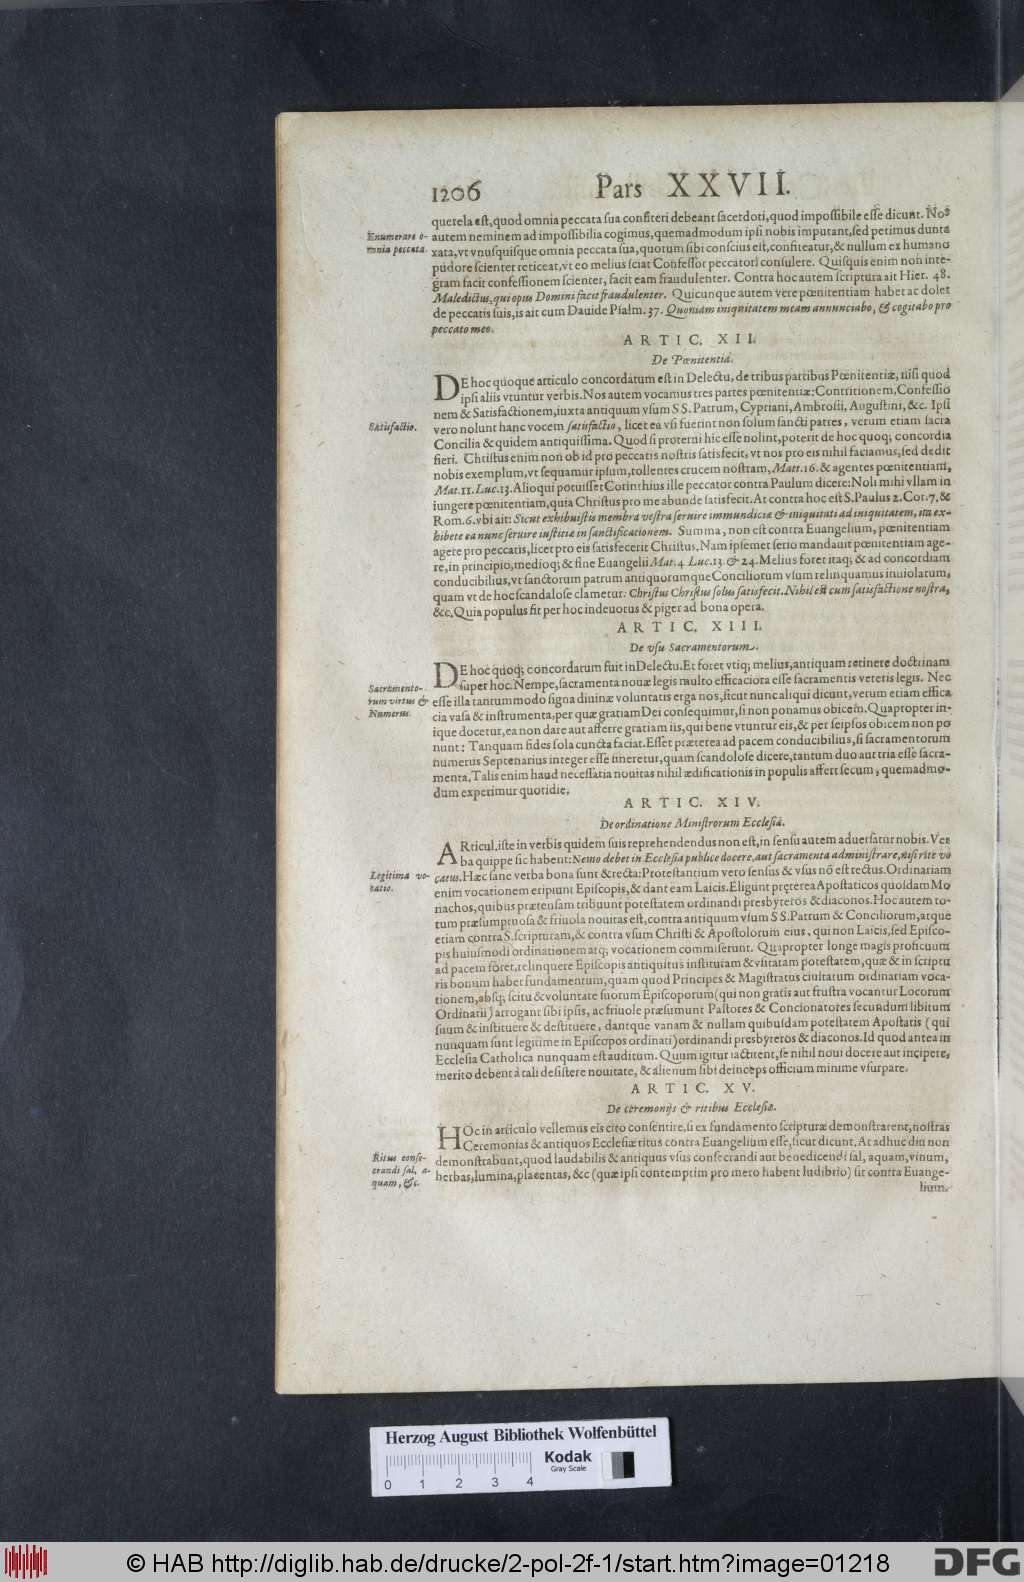 1206 Pars XXVII.
querela est, quod omnia peccata sua confiteri debeant sacerdoti, quod impossibile esse dicunt. Nos
Enumerare o-
mnia peccata.
autem neminem ad impossibilia cogimus, quemadmodum ipsi nobis imputant, sed petimus dunta
xata, vt vnusquisque omnia peccata sua, quorum sibi conscius est, confiteatur, & nullum ex humano
pudore scienter reticeat, vt eo melius sciat Confessor peccatori consulere. Quisquis enim non inte-
gram facit confessionem scienter, facit eam fraudulenter. Contra hoc autem scriptura ait Hier. 48.
Maledictus, qui opus Domini facit fraudulenter. Quicunque autem vere pœnitentiam habet ac dolet
de peccatis suis, is ait cum Dauide Psalm. 37. Quoniam iniquitatem meam annunciabo, & cogitabo pro
peccato meo.
ARTIC. XII.
De Pœnitentia.
DE hoc quoque articulo concordatum est in Delectu, de tribus partibus Pœnitentiæ, nisi quod
ipsi aliis vtuntur verbis. Nos autem vocamus tres partes pœnitentiæ: Contritionem, Confessio
nem & Satisfactionem, iuxta antiquum vsum SS. Patrum, Cypriani, Ambrosii, Augustini, &c. Ipsi
Satisfactio.
vero nolunt hanc vocem satisfactio, licet ea vsi fuerint non solum sancti patres, verum etiam sacra
Concilia & quidem antiquissima. Quod si proterui hic esse nolint, poterit de hoc quoq; concordia
fieri. Christus enim non ob id pro peccatis nostris satisfecit, vt nos pro eis nihil faciamus, sed dedit
nobis exemplum, vt sequamur ipsum, tollentes crucem nostram, Matt. 16. & agentes pœnitentiam,
Mat. 11. Luc. 13. Alioqui potuisset Corinthius ille peccator contra Paulum dicere: Noli mihi vllam in
iungere pœnitentiam, quia Christus pro me abunde satisfecit. At contra hoc est S. Paulus 2. Cor. 7, &
Rom. 6. vbi ait: Sicut exhibuistis membra vestra seruire immundiciæ & iniquitati ad iniquitatem, ita ex-
hibete ea nunc seruire iustitiæ in sanctificationem. Summa, non est contra Euangelium, pœnitentiam
agere pro peccatis, licet pro eis satisfecerit Christus. Nam ipsemet serio mandauit pœnitentiam age-
re, in principio, medioq; & fine Euangelii Mat. 4 Luc. 13. & 24. Melius foret itaq; & ad concordiam
conducibilius, vt sanctorum patrum antiquorumque Conciliorum vsum relinquamus inuiolatum,
quam vt de hoc scandalose clametur: Christus Christus solus satisfecit. Nihil est cum satisfactione nostra,
&c. Quia populus fit per hoc indeuotus & piger ad bona opera.
ARTIC. XIII.
De vsu Sacramentorum.
DE hoc quoq; concordatum fuit in Delectu. Et foret vtiq; melius, antiquam retinere doctrinam
Sacramento-
rum virtus &
Numerus.
super hoc. Nempe, sacramenta nouæ legis multo efficaciora esse sacramentis veteris legis. Nec
esse illa tantummodo signa diuinæ voluntatis erga nos, sicut nunc aliqui dicunt, verum etiam effica
cia vasa & instrumenta, per quæ gratiam Dei consequimur, si non ponamus obicem. Quapropter in-
ique docetur, ea non dare aut afferre gratiam iis, qui bene vtuntur eis, & per seipsos obicem non po
nunt: Tanquam fides sola cuncta faciat. Esset præterea ad pacem conducibilius, si sacramentorum
numerus Septenarius integer esse sineretur, quam scandolose dicere, tantum duo aut tria esse sacra-
menta. Talis enim haud necessaria nouitas nihil ædificationis in populis affert secum, quemadmo-
dum experimur quotidie.
ARTIC. XIV.
De ordinatione Ministrorum Ecclesiæ.
ARticul. iste in verbis quidem suis reprehendendus non est, in sensu autem aduersatur nobis. Ver
ba quippe sic habent: Nemo debet in Ecclesia publice docere, aut sacramenta administrare, nisi rite vo
Legitima vo-
catio.
catus. Hæc sane verba bona sunt & recta: Protestantium vero sensus & vsus nō est rectus. Ordinariam
enim vocationem eripiunt Episcopis, & dant eam Laicis. Eligunt præterea Apostaticos quosdam Mo
nachos, quibus prætensam tribuunt potestatem ordinandi presbyteros & diaconos. Hoc autem to-
tum præsumptuosa & friuola nouitas est, contra antiquum vsum SS. Patrum & Conciliorum, atque
etiam contra S. scripturam, & contra vsum Christi & Apostolorum eius, qui non Laicis, sed Episco-
pis huiusmodi ordinationem atq; vocationem commiserunt. Quapropter longe magis proficuum
ad pacem foret, relinquere Episcopis antiquitus institutam & vsitatam potestatem, quæ & in scriptu
ris bonum habet fundamentum, quam quod Principes & Magistratus ciuitatum ordinariam voca-
tionem, absq; scitu & voluntate suorum Episcoporum (qui non gratis aut frustra vocantur Locorum
Ordinarii) arrogant sibi ipsis, ac friuole præsumunt Pastores & Concionatores secundum libitum
suum & instituere & destituere, dantque vanam & nullam quibusdam potestatem Apostatis (qui
nunquam sunt legitime in Episcopos ordinati) ordinandi presbyteros & diaconos. Id quod antea in
Ecclesia Catholica nunquam est auditum. Quum igitur iactitent, se nihil noui docere aut incipere,
merito debent à tali desistere nouitate, & alienum sibi deinceps officium minime vsurpare.
ARTIC. XV.
De ceremonijs & ritibus Ecclesiæ.
HOc in articulo vellemus eis cito consentire, si ex fundamento scripturæ demonstrarent, nostras
Ceremonias & antiquos Ecclesiæ ritus contra Euangelium esse, sicut dicunt. At adhuc diu non
Ritus conse-
crandi sal, a-
quam, &c.
demonstrabunt, quod laudabilis & antiquus vsus consecrandi aut benedicendi sal, aquam, vinum,
herbas, lumina, placentas, &c (quæ ipsi contemptim pro mero habent ludibrio) sit contra Euange-
lium.
Herzog August Bibliothek Wolfenbüttel
0 1 2 3 4
Kodak
Gray Scale
© HAB http://diglib.hab.de/drucke/2-pol-2f-1/start.htm?image=01218
DFG